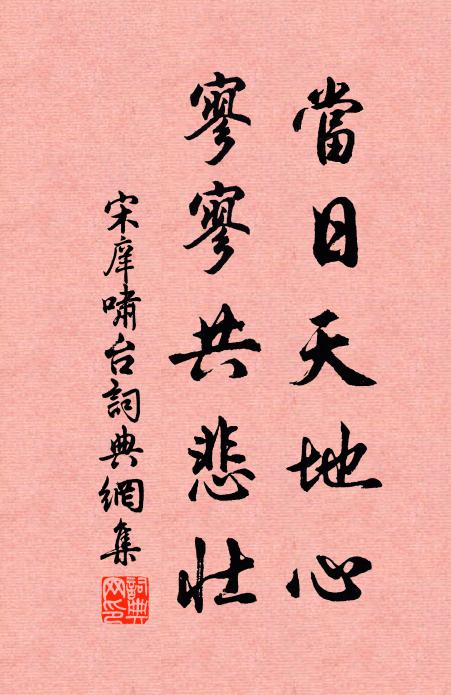 當日天地心
寥寥共悲壯
宋庠嘯台詞典網集
詞典网印